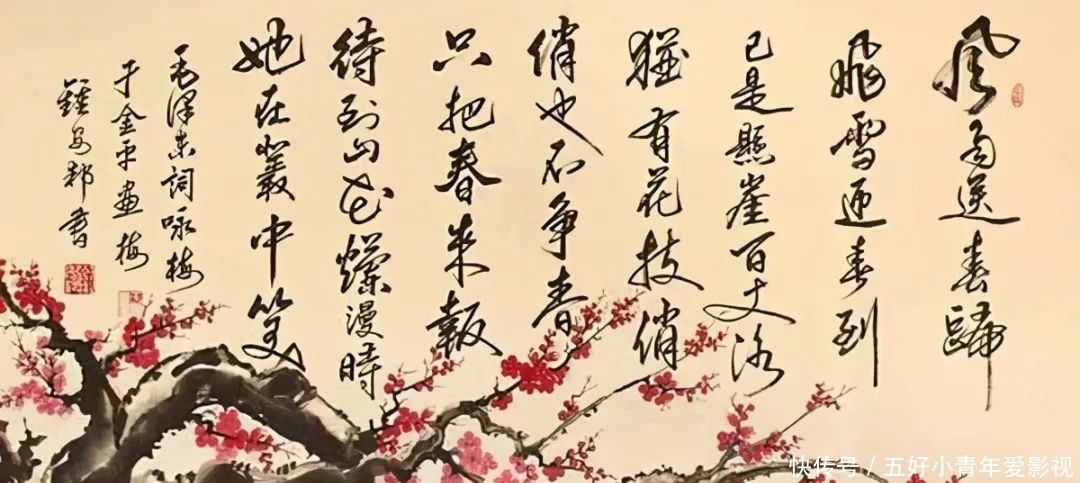 風雨送春歸
飛雪迎春到
已是懸崖百丈冰
猶有花枝俏
俏也不争春
只把春來報
待到山花爛漫時
她在叢中笑
毛澤東詞咏梅
于金平畫梅
書
快传号 / 五好小青年爱影视